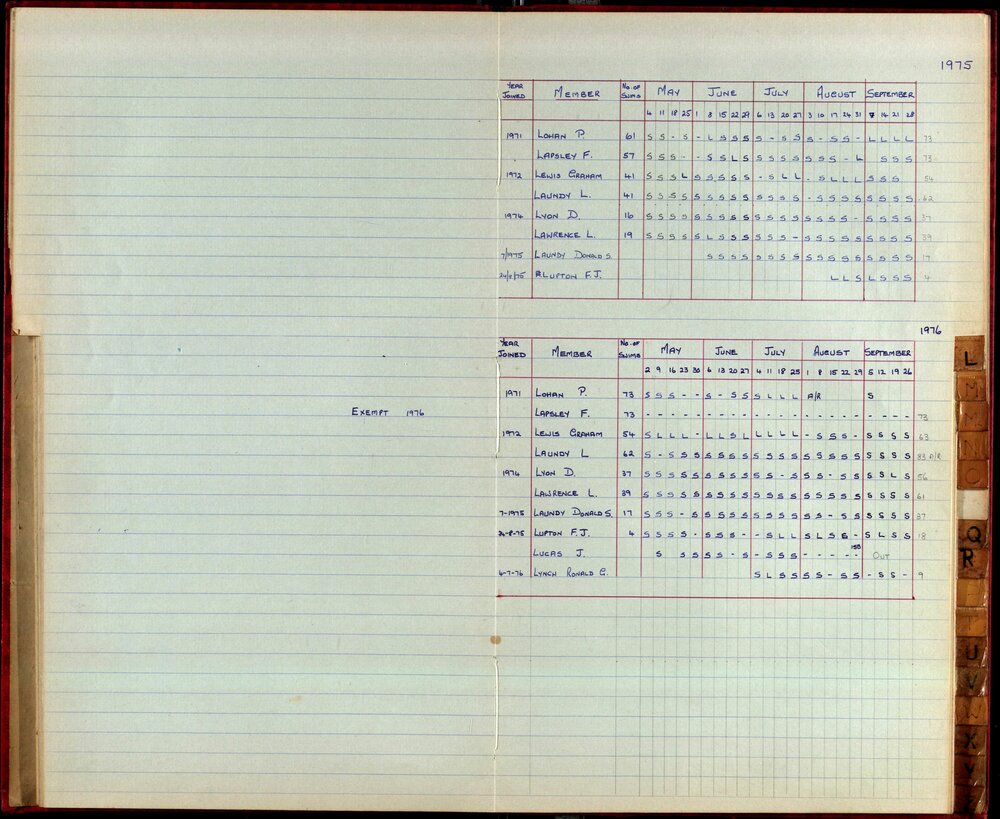 1975
YEAR JOINED MEMBER No. OF SWIMS MAY JUNE JULY AUGUST SEPTEMBER
4 11 18 25 1 8 15 22 29 6 13 20 27 3 10 17 24 31 7 14 21 28
1971 LOHAN P. 61 S S - S - L S S S S - S S S - S S - L L L L 73
LAPSLEY F. 57 S S S - - S S L S S S S S S S S - L S S S 73
1972 LEWIS GRAHAM 41 S S S L S S S S S - S L L - S L L L S S S 54
LAUNDY L. 41 S S S S S S S S S S S S S - S S S S S S S S 62
1974 LYON D. 16 S S S S S S S S S S S S S S S S S - S S S S 37
LAWRENCE L. 19 S S S S S L S S S S S S - S S S S S S S S S 39
7/1975 LAUNDY DONALD S. S S S S S S S S S S S S S S S S S 17
24/8/75 LUPTON F.J. L L S L S S S 4
1976
YEAR JOINED MEMBER No. OF SWIMS MAY JUNE JULY AUGUST SEPTEMBER
2 9 16 23 30 6 13 20 27 4 11 18 25 1 8 15 22 29 5 12 19 26
1971 LOHAN P. 73 S S S - - S - S S S L L L A/R S
EXEMPT 1976 LAPSLEY F. 73 - - - - - - - - - - - - - - - - - - - - - - 73
1972 LEWIS GRAHAM 54 S L L L - L L S L L L L L - S S S - S S S S 63
LAUNDY L 62 S - S S S S S S S S S S S S S S S S S S S S 83 A/R
1974 LYON D. 37 S S S S S S S S S S S - S S S - S S S S L S 56
LAWRENCE L. 39 S S S S S S S S S S S S S S S S S S S S S S 61
7-1975 LAUNDY DONALD S. 17 S S S - S S S S S S S S S S S - S S S S S S 37
24-8-75 LUPTON F.J. 4 S S S S - S S S - - S L L S L S S - S L S S 18
LUCAS J. S S S S S - S - S S S - - - - - OUT
4-7-76 LYNCH RONALD G. S L S S S S - S S - S S - 9
L
M
N
O
Q
R
P
T
U
V
W
X
Y
Z